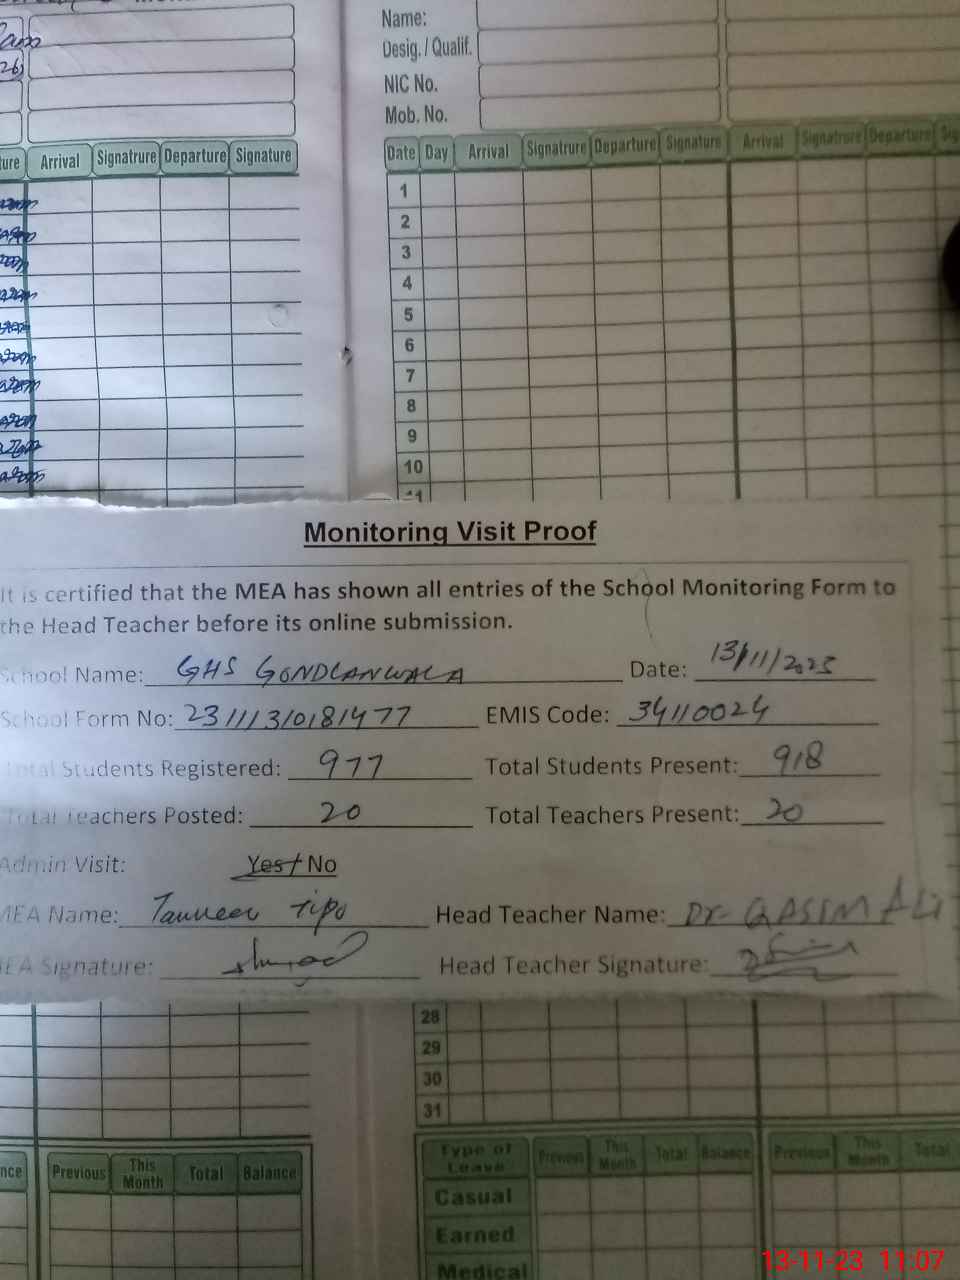 Name:
Desig. / Qualif.
NIC No.
Mob. No.
Arrival Signatrure Departure Signature
Date Day Arrival Signatrure Departure Signature Arrival Signatrure Departure
1
2
3
4
5
6
7
8
9
10
11
Monitoring Visit Proof
It is certified that the MEA has shown all entries of the School Monitoring Form to
the Head Teacher before its online submission.
School Name: GHS GONDLANWALA Date: 13/11/2023
School Form No: 23111310181477 EMIS Code: 34110024
Total Students Registered: 977 Total Students Present: 918
Total Teachers Posted: 20 Total Teachers Present: 20
Admin Visit: Yes/No
MEA Name: Tanveer Tipo Head Teacher Name: Dr. QASIM ALI
MEA Signature: Head Teacher Signature:
28
29
30
31
Previous This Month Total Balance
Type of Leave Previous This Month Total Balance Previous This Month Total
Casual
Earned
Medical
13-11-23 11:07